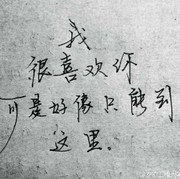 我
很喜欢你
可是好像只能到
这里.